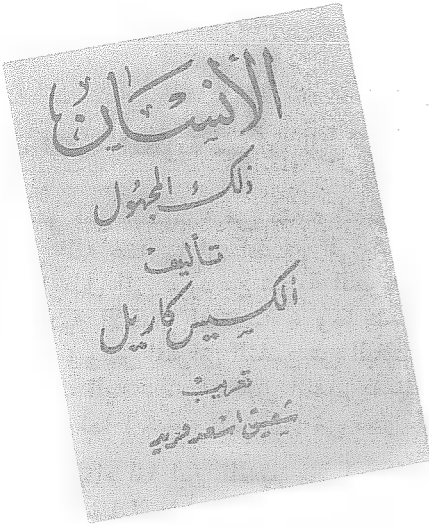 الأنسان
ذلك المجهول
تأليف
ألكسيس كاريل
تعريب
شفيق أسعد فريد